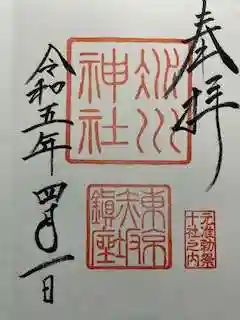 奉拝
氷川
神社
東京
赤坂
鎮座
元准勅祭
十社之内
令和五年四月一日